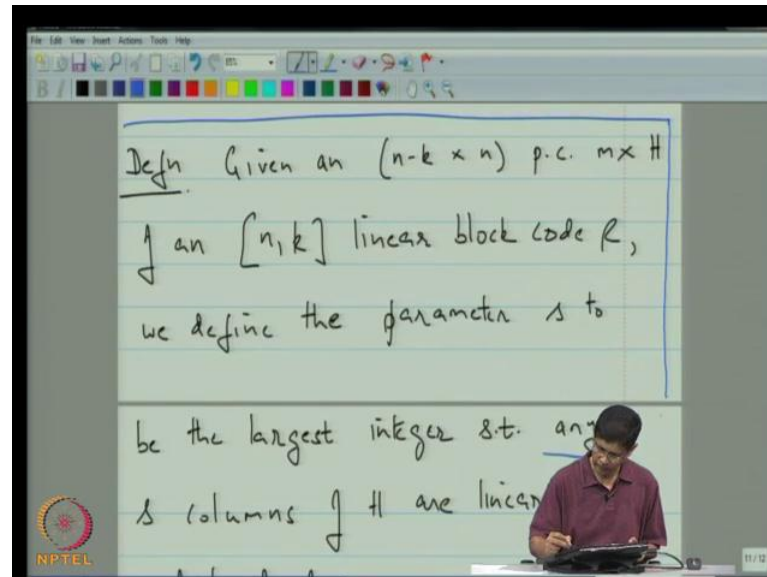 File Edit View Insert Actions Tools Help
Defn Given an (n-k x n) p.c. mx H
of an [n, k] linear block code C,
we define the parameter s to
be the largest integer s.t. any
s columns of H are linear
NPTEL
11/12